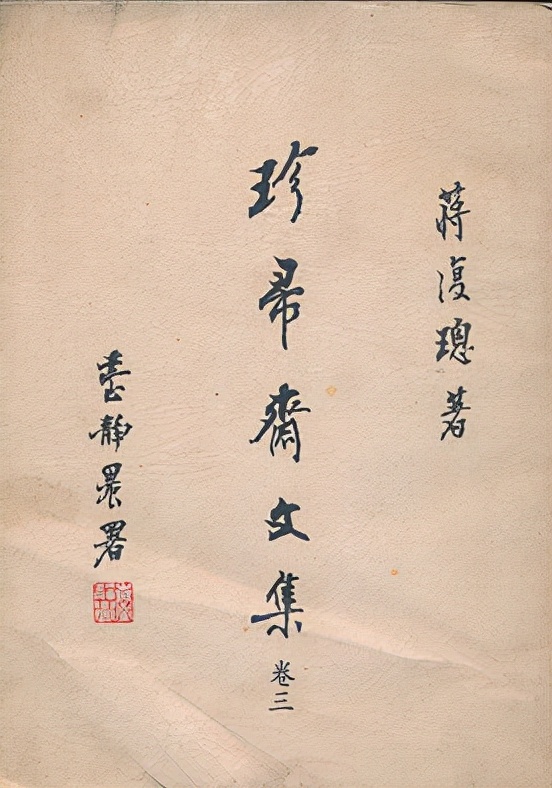 蔣復璁著
珍帚齋文集
卷三
臺靜農署